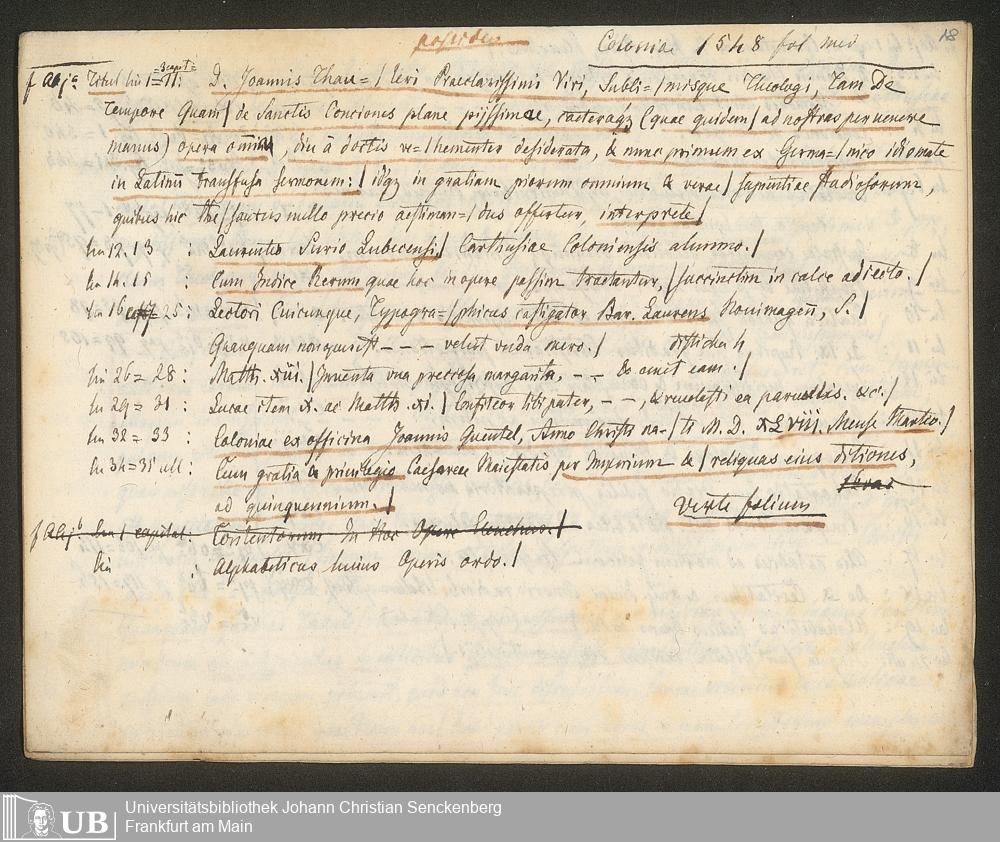 possideo
Coloniae 1548 fol med
18
f Aij a Titul lin 1=11: D. Joannis Thau=/ leri Praeclarissimi Viri, Subli=/ misque Theologi, Tam De
=3 capit=
Tempore Quam/ de Sanctis Conciones plane pijssimae, caeteraqz (quae quidem/ ad nostras pervenere
manus) opera omnia, diu à doctis ve=/ hementer desiderata, & nunc primum ex Germa=/ nico idiomate
in Latinū transfusa sermonem:/ idqz in gratiam piorum omnium & verae/ sapientiae studiosorum,
quibus hic the/ saurus nullo precio aestiman=/ dus offertur, interprete/
lin 12, 13 : Laurentio Surio Lubecensi,/ Carthusiae Coloniensis alumno./
lin 14. 15 : Cum Indice Rerum quae hoc in opere passim tractantur,/ succinctim in calce adiecto. /
lin 16 = 25 : Lectori Cuicunque, Typogra=/ phicus castigator Bar. Laurens Novimageñ, S./
Quanquam non quaesit - - - velut unda mero. / disticha 4
lin 26 = 28 : Matth. xiii. / Inventa una preciosa margarita, - - & emit eam. /
lin 29 = 31 : Lucae item x. ac Matth. xi. / Confiteor tibi pater, - - , & revelasti ea parvulis. &c. /
lin 32 = 33 : Coloniae ex officina Joannis Quentel, Anno Christi na=/ ti M. D. XLviii. Mense Martio. /
lin 34=35 ult : Cum gratia & privilegio Caesareae Maiestatis per Imperium & / reliquas eius ditiones,
ad quinquennium. /
Verte folium
f Aij b. Lin 1 capital: Contentorum In Hoc Opere Elenchus. /
lin : Alphabeticus huius Operis ordo. /
UB Universitätsbibliothek Johann Christian Senckenberg
Frankfurt am Main